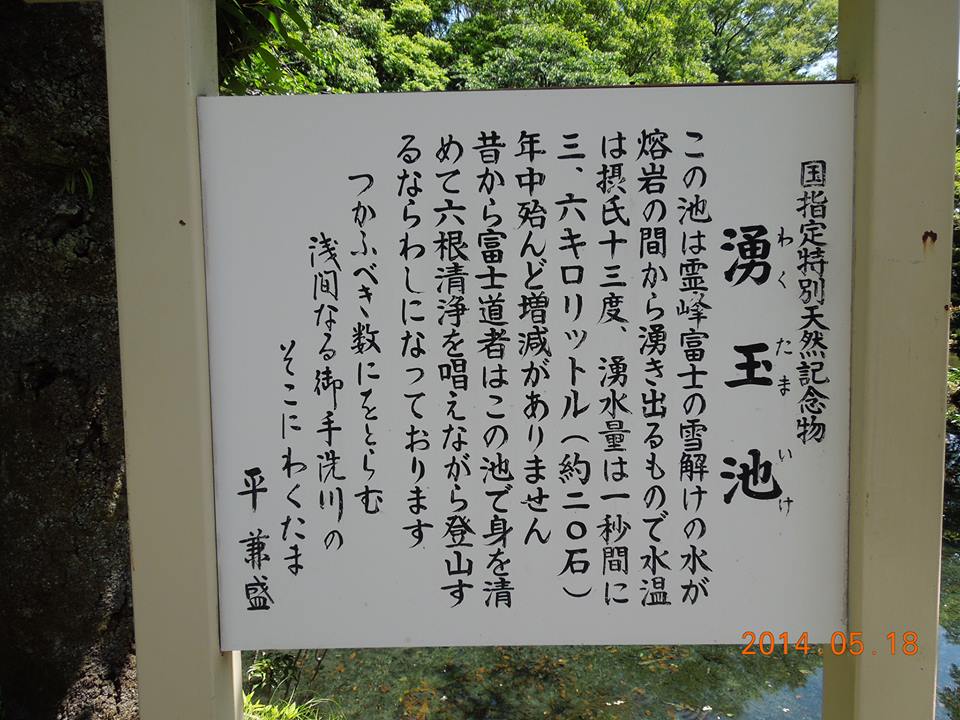 国指定特別天然記念物
湧玉池
わくたまいけ
この池は霊峰富士の雪解けの水が
熔岩の間から湧き出るもので水温
は摂氏十三度、湧水量は一秒間に
三、六キロリットル（約二〇石）
年中殆んど増減がありません
昔から富士道者はこの池で身を清
めて六根清浄を唱えながら登山す
るならわしになっております
つかふべきゝ数にをとらむ
浅間なる御手洗川の
そこにわくたま
平兼盛
2014.05.18